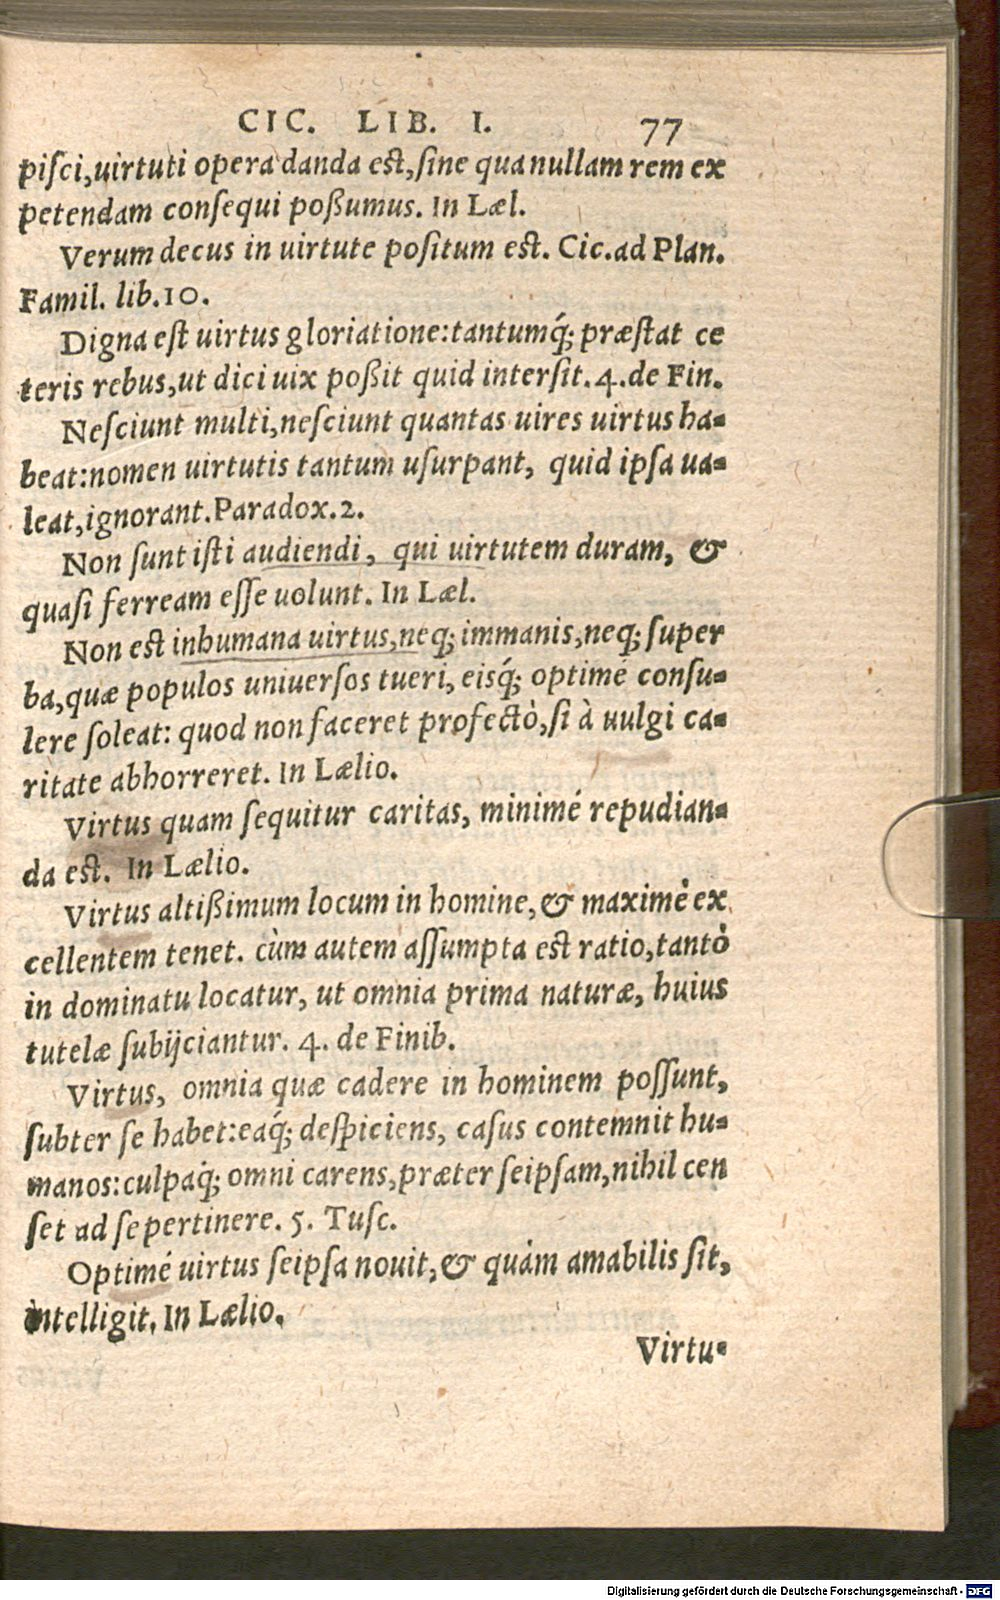 CIC. LIB. I. 77
piſci,uirtuti opera danda eſt,ſine qua nullam rem ex
petendam conſequi poßumus. In Læl.
Verum decus in uirtute poſitum eſt. Cic.ad Plan.
Famil. lib.10.
Digna eſt uirtus gloriatione:tantumq́; præſtat ce
teris rebus,ut dici uix poßit quid interſit.4.de Fin.
Neſciunt multi,neſciunt quantas uires uirtus ha-
beat:nomen uirtutis tantum uſurpant, quid ipſa ua-
leat,ignorant.Paradox.2.
Non ſunt iſti audiendi, qui uirtutem duram, &
quaſi ferream eſſe uolunt. In Læl.
Non eſt inhumana uirtus,neq; immanis,neq; ſuper
ba,quæ populos uniuerſos tueri, eisq́; optimé conſu-
lere ſoleat: quod non faceret profectò,ſi à uulgi ca-
ritate abhorreret. In Lælio.
Virtus quam ſequitur caritas, minimé repudian-
da eſt. In Lælio.
Virtus altißimum locum in homine,& maximè ex
cellentem tenet. cùm autem aſſumpta eſt ratio,tantò
in dominatu locatur, ut omnia prima naturæ, huius
tutelæ ſubijciantur. 4. de Finib.
Virtus, omnia quæ cadere in hominem poſſunt,
ſubter ſe habet:eaq́; deſpiciens, caſus contemnit hu-
manos:culpaq́; omni carens,præter ſeipſam,nihil cen
ſet ad ſe pertinere. 5. Tuſc.
Optimé uirtus ſeipſa nouit,& quàm amabilis ſit,
intelligit. In Lælio.
Virtu-
Digitalisierung gefördert durch die Deutsche Forschungsgemeinschaft - DFG